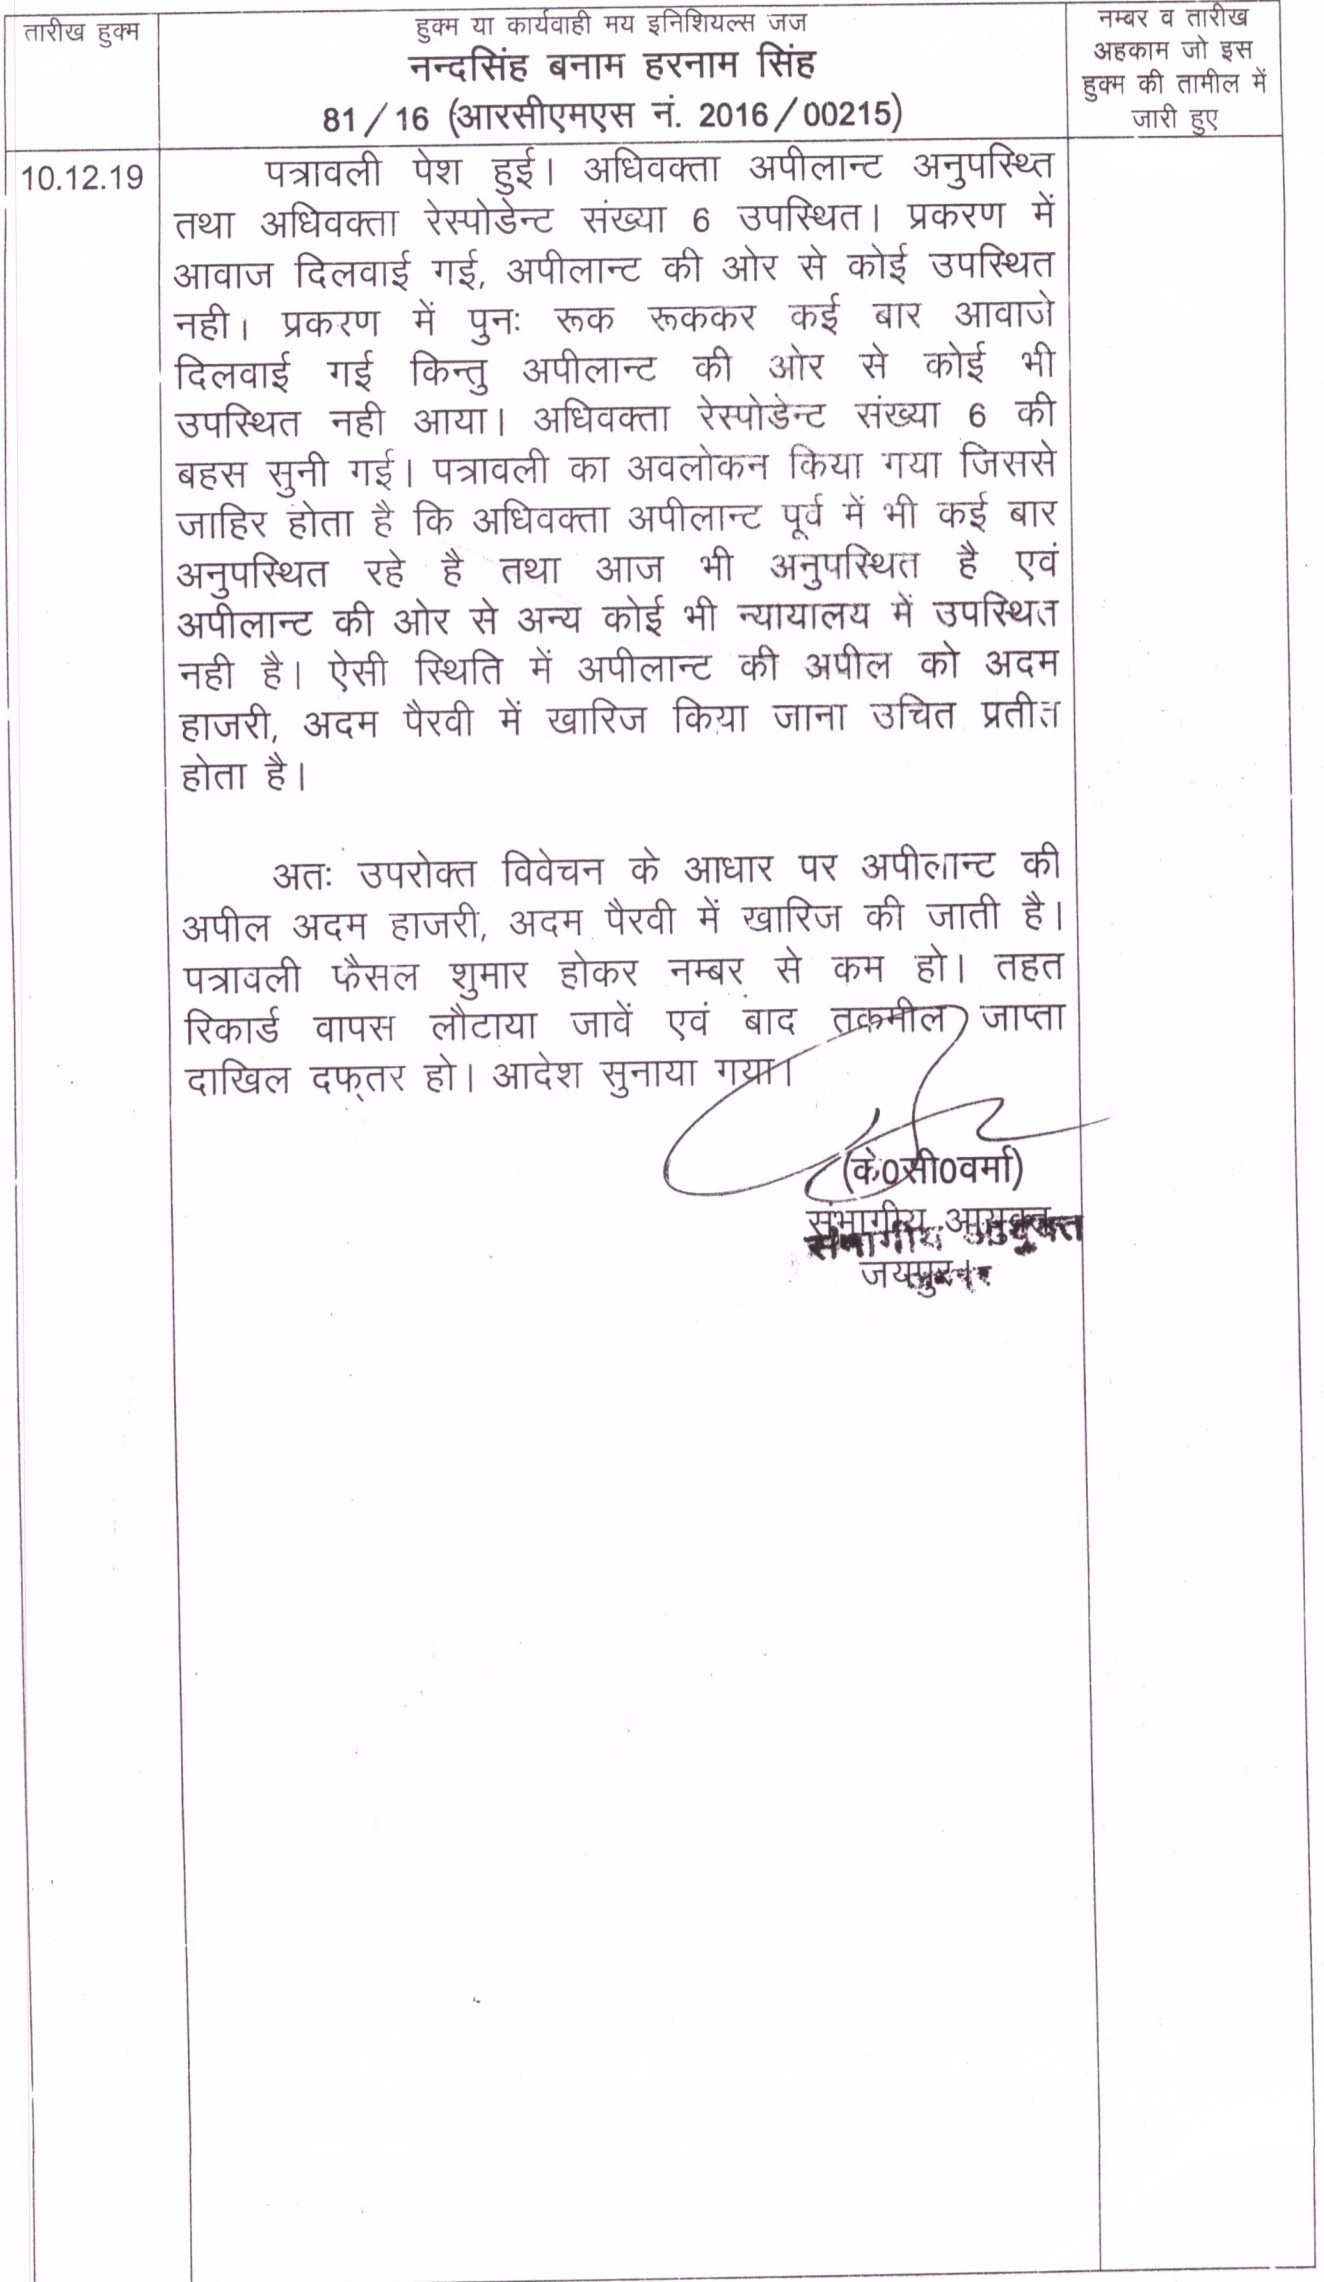 तारीख हुक्म
हुक्म या कार्यवाही मय इनिशियल्स जज
नन्दसिंह बनाम हरनाम सिंह
81/16 (आरसीएमएस नं. 2016/00215)
नम्बर व तारीख
अहकाम जो इस
हुक्म की तामील में
जारी हुए
10.12.19
पत्रावली पेश हुई। अधिवक्ता अपीलान्ट अनुपस्थ्ति
तथा अधिवक्ता रेस्पोडेन्ट संख्या 6 उपस्थित। प्रकरण में
आवाज दिलवाई गई, अपीलान्ट की ओर से कोई उपस्थित
नही। प्रकरण में पुनः रूक रूककर कई बार आवाजे
दिलवाई गई किन्तु अपीलान्ट की ओर से कोई भी
उपस्थित नही आया। अधिवक्ता रेस्पोडेन्ट संख्या 6 की
बहस सुनी गई। पत्रावली का अवलोकन किया गया जिससे
जाहिर होता है कि अधिवक्ता अपीलान्ट पूर्व में भी कई बार
अनुपस्थित रहे है तथा आज भी अनुपस्थित है एवं
अपीलान्ट की ओर से अन्य कोई भी न्यायालय में उपस्थित
नही है। ऐसी स्थिति में अपीलान्ट की अपील को अदम
हाजरी, अदम पैरवी में खारिज किया जाना उचित प्रतीत
होता है।
अतः उपरोक्त विवेचन के आधार पर अपीलान्ट की
अपील अदम हाजरी, अदम पैरवी में खारिज की जाती है।
पत्रावली फैसल शुमार होकर नम्बर से कम हो। तहत
रिकार्ड वापस लौटाया जावें एवं बाद तकमील जाप्ता
दाखिल दफ्तर हो। आदेश सुनाया गया।
(के0सी0वर्मा)
संभागीय आयुक्त
संभागीय आयुक्त
जयपुर